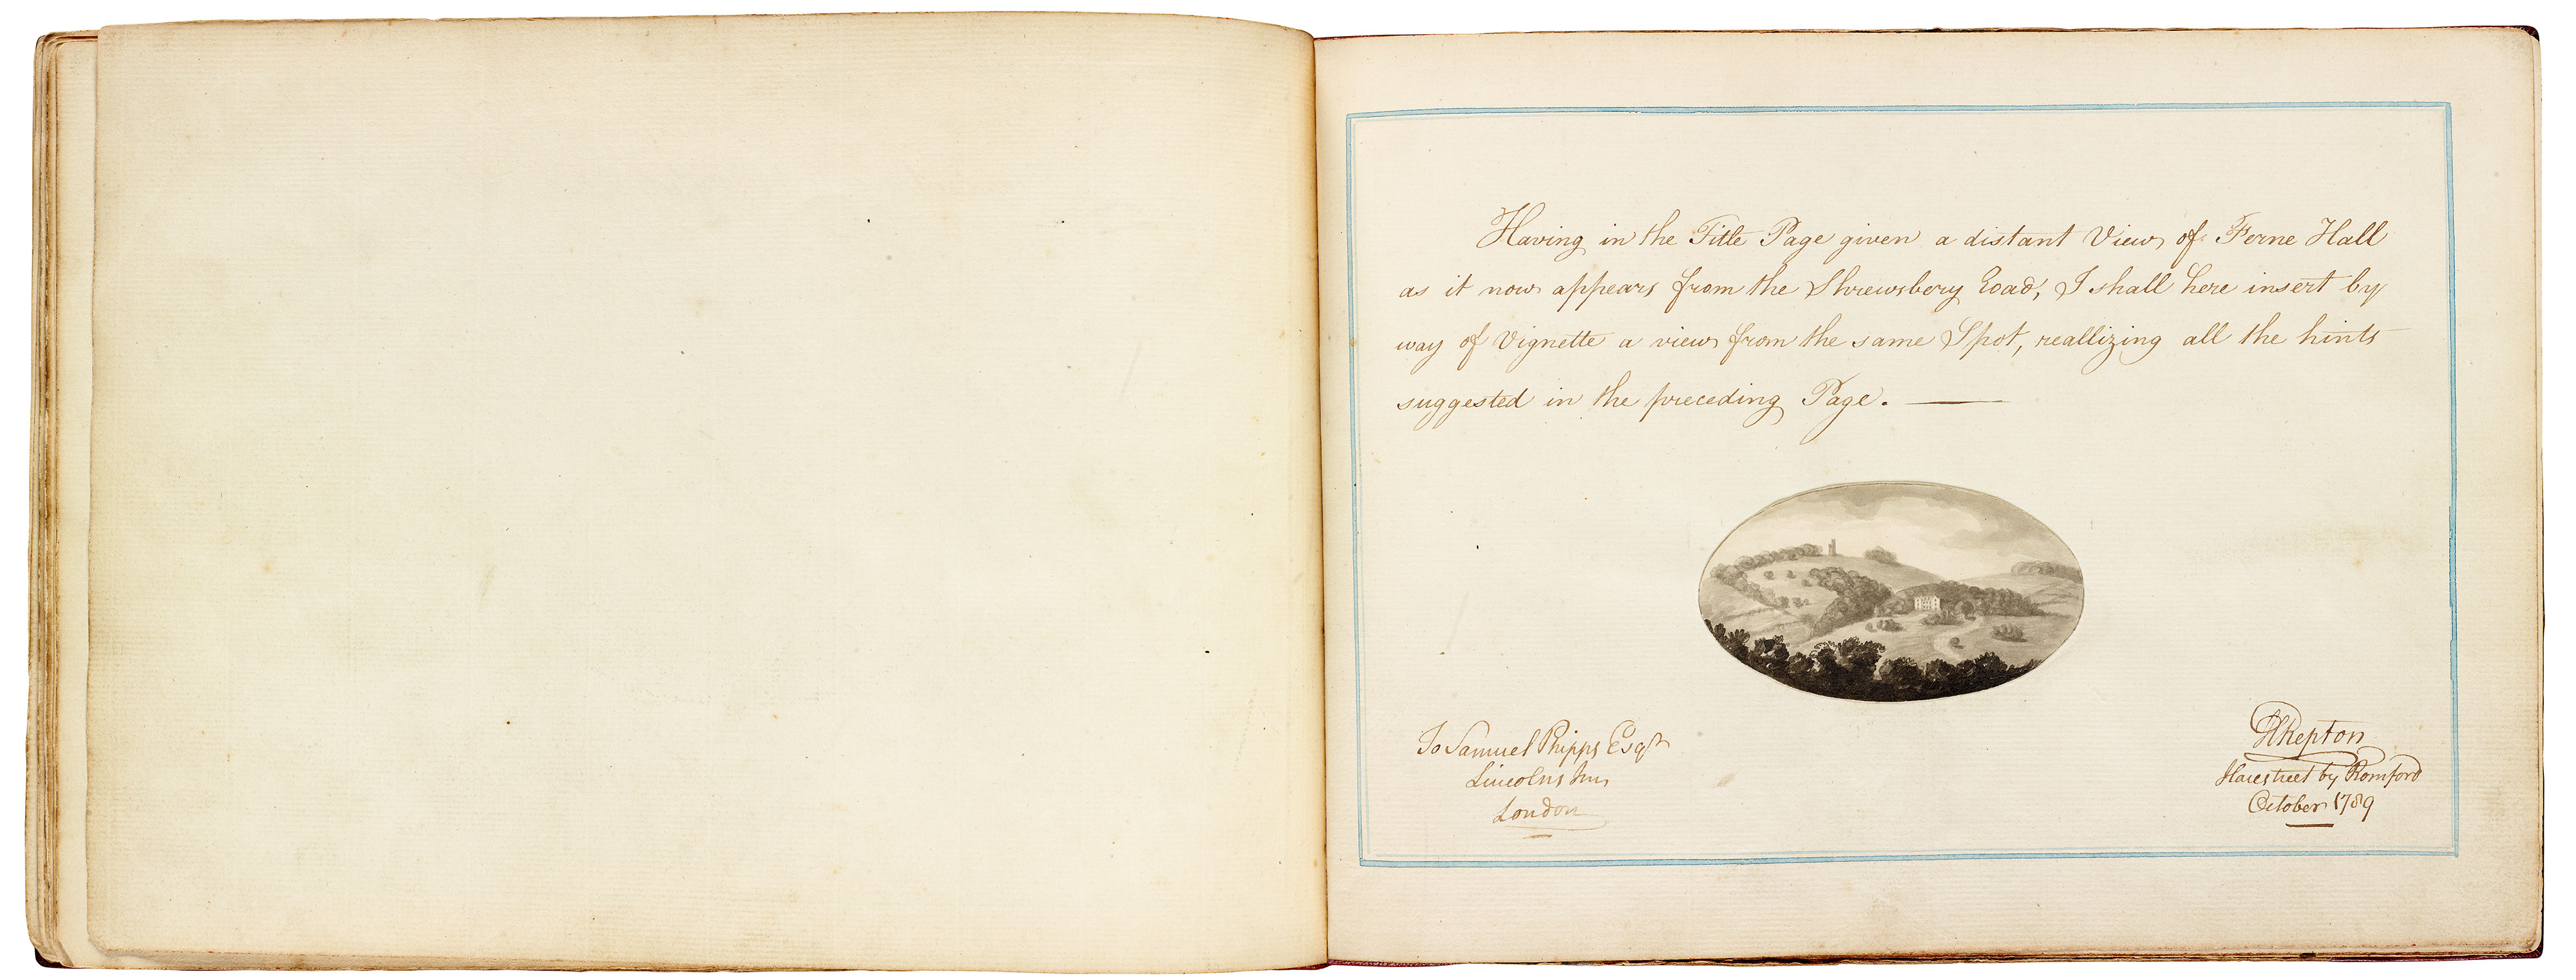 Having in the Title Page given a distant View of Ferne Hall
as it now appears from the Shrewsbery Road, I shall here insert by
way of Vignette a view from the same Spot, reallizing all the hints
suggested in the preceding Page. —
To Samuel Phipps Esqr
Lincolns Inn
London
HRepton
Harestreet by Romford
October 1789